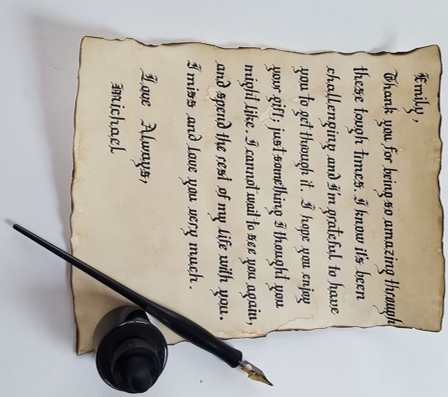 Emily,
Thank you for being so amazing through
these tough times. I know it's been
challenging and I'm grateful to have
you to get through it. I hope you enjoy
your gift; just something I thought you
might like. I cannot wait to see you again,
and spend the rest of my life with you.
I miss and love you very much.
Love Always,
Michael